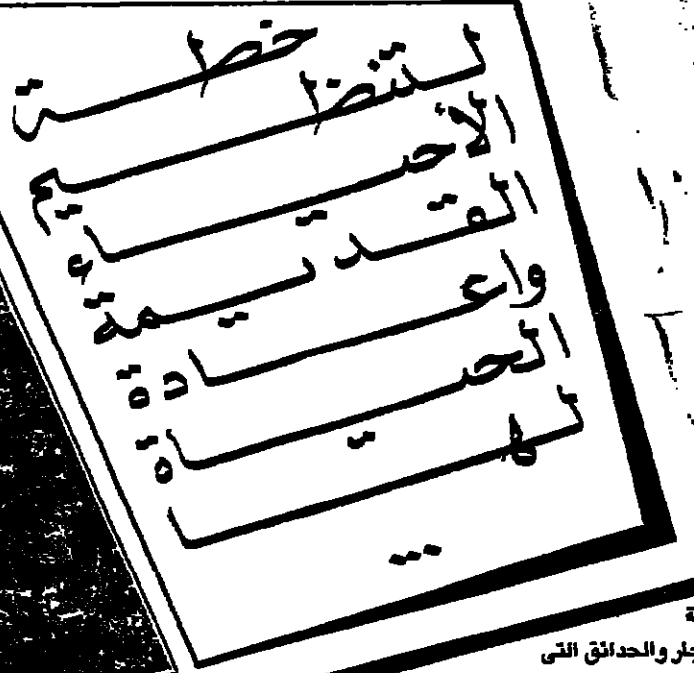 خطة
لتنظيم
الأحياء
القديمة
واعادة
الحياة
لها
...
والحدائق التى